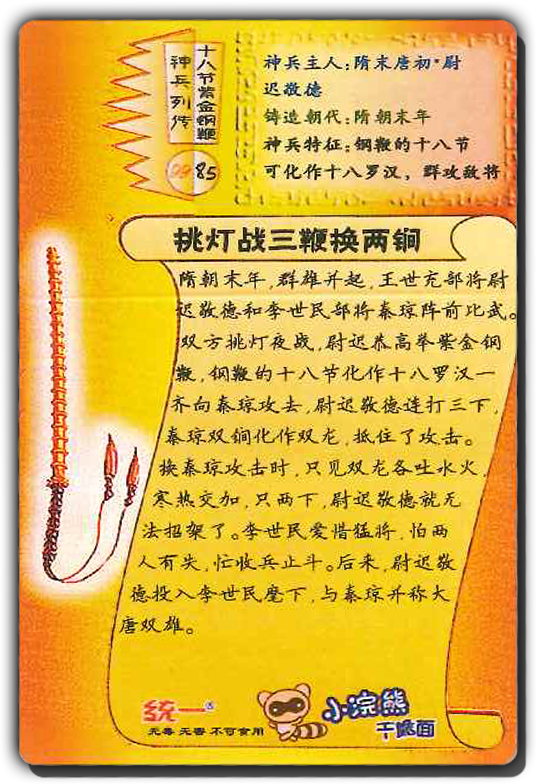 十八节紫金钢鞭
神兵列传
99 85
神兵主人:隋末唐初·尉
迟敬德
铸造朝代:隋朝末年
神兵特征:钢鞭的十八节
可化作十八罗汉，群攻敌将
挑灯战三鞭换两锏
隋朝末年,群雄并起,王世充部将尉
迟敬德和李世民部将秦琼阵前比武。
双方挑灯夜战,尉迟恭高举紫金钢
鞭,钢鞭的十八节化作十八罗汉一
齐向秦琼攻去,尉迟敬德连打三下,
秦琼双锏化作双龙,抵住了攻击。
换秦琼攻击时,只见双龙各吐水火,
寒热交加,只两下,尉迟敬德就无
法招架了。李世民爱惜猛将,怕两
人有失,忙收兵止斗。后来,尉迟敬
德投入李世民麾下,与秦琼并称大
唐双雄。
统一®
无毒 无害 不可食用
小浣熊
干脆面